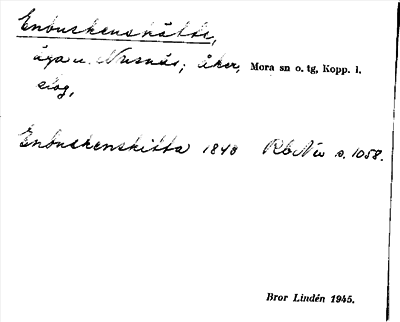 Enbuskenskätte,
äga u. Nusnäs; åker, Mora sn o. tg, Kopp. l.
skog,
Enbuskenskitta 1848 RbNio s. 1058.
Bror Lindén 1945.